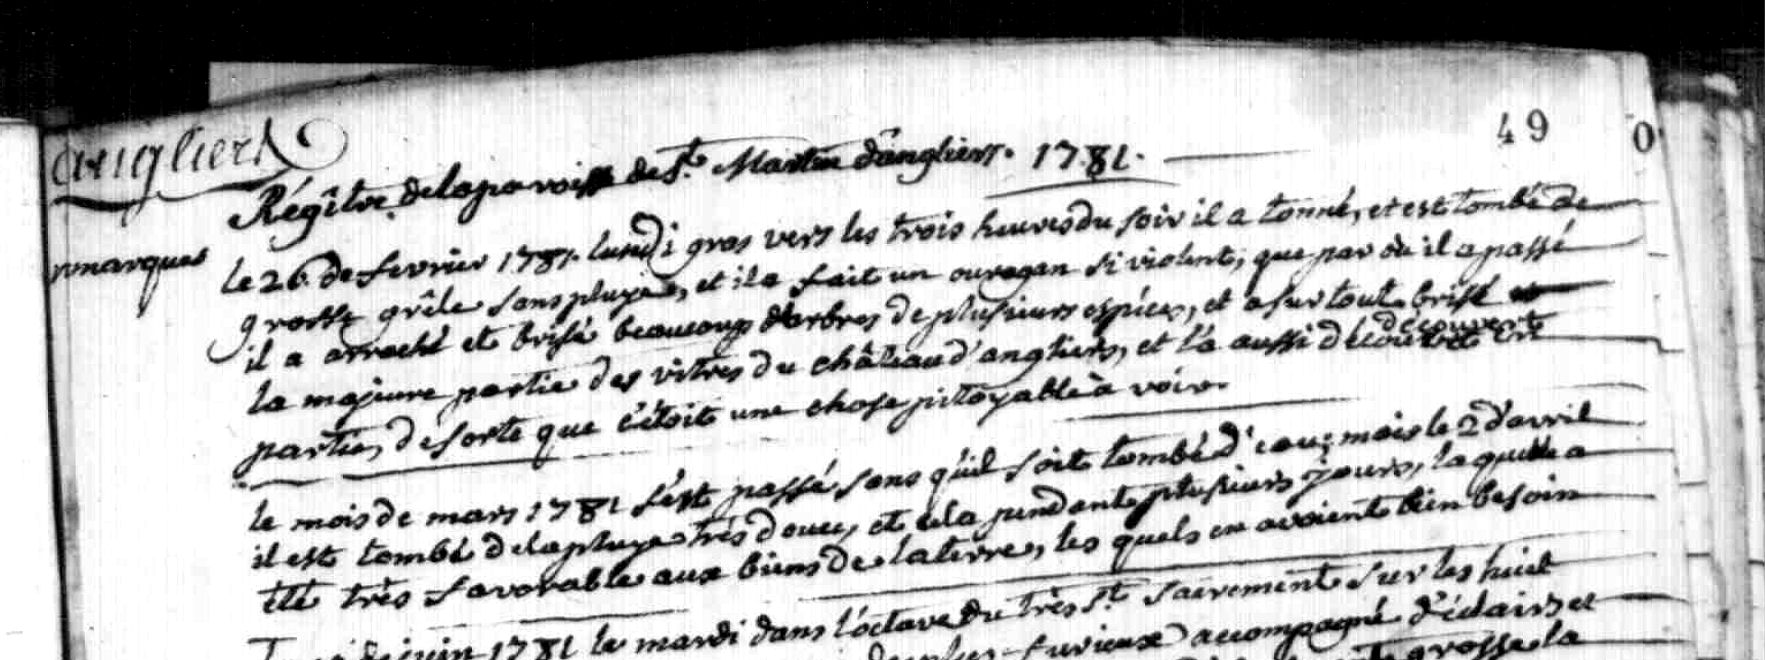 49
0
angliers
Régître de la paroisse de St. Martin d'angliers. 1781.
remarques
le 26. de fevrier 1781. lundi gras vers les trois heures du soir il a tonné, et est tombé de
grosse grêle sans pluye, et il a fait un ouragan si violent, que par où il a passé
il a arraché et brisé beaucoup d'arbres de plusieurs espéces, et a sur tout brisé
la majeure partie des vitres du château d'angliers, et l'a aussi découvert en
partie, de sorte que c'étoit une chose pitoyable à voir.
le mois de mars 1781 s'est passé sans qu'il soit tombé d'eau; mais le 2 d'avril
il est tombé de la pluye très douce, et cela pendant plusieurs jours, laquelle a
été très favorable aux biens de la terre, les quels en avoient bien besoin
juin 1781 le mardi dans l'octave du très St. sacrement sur les huit
furieux accompagné d'éclairs et
grosse la